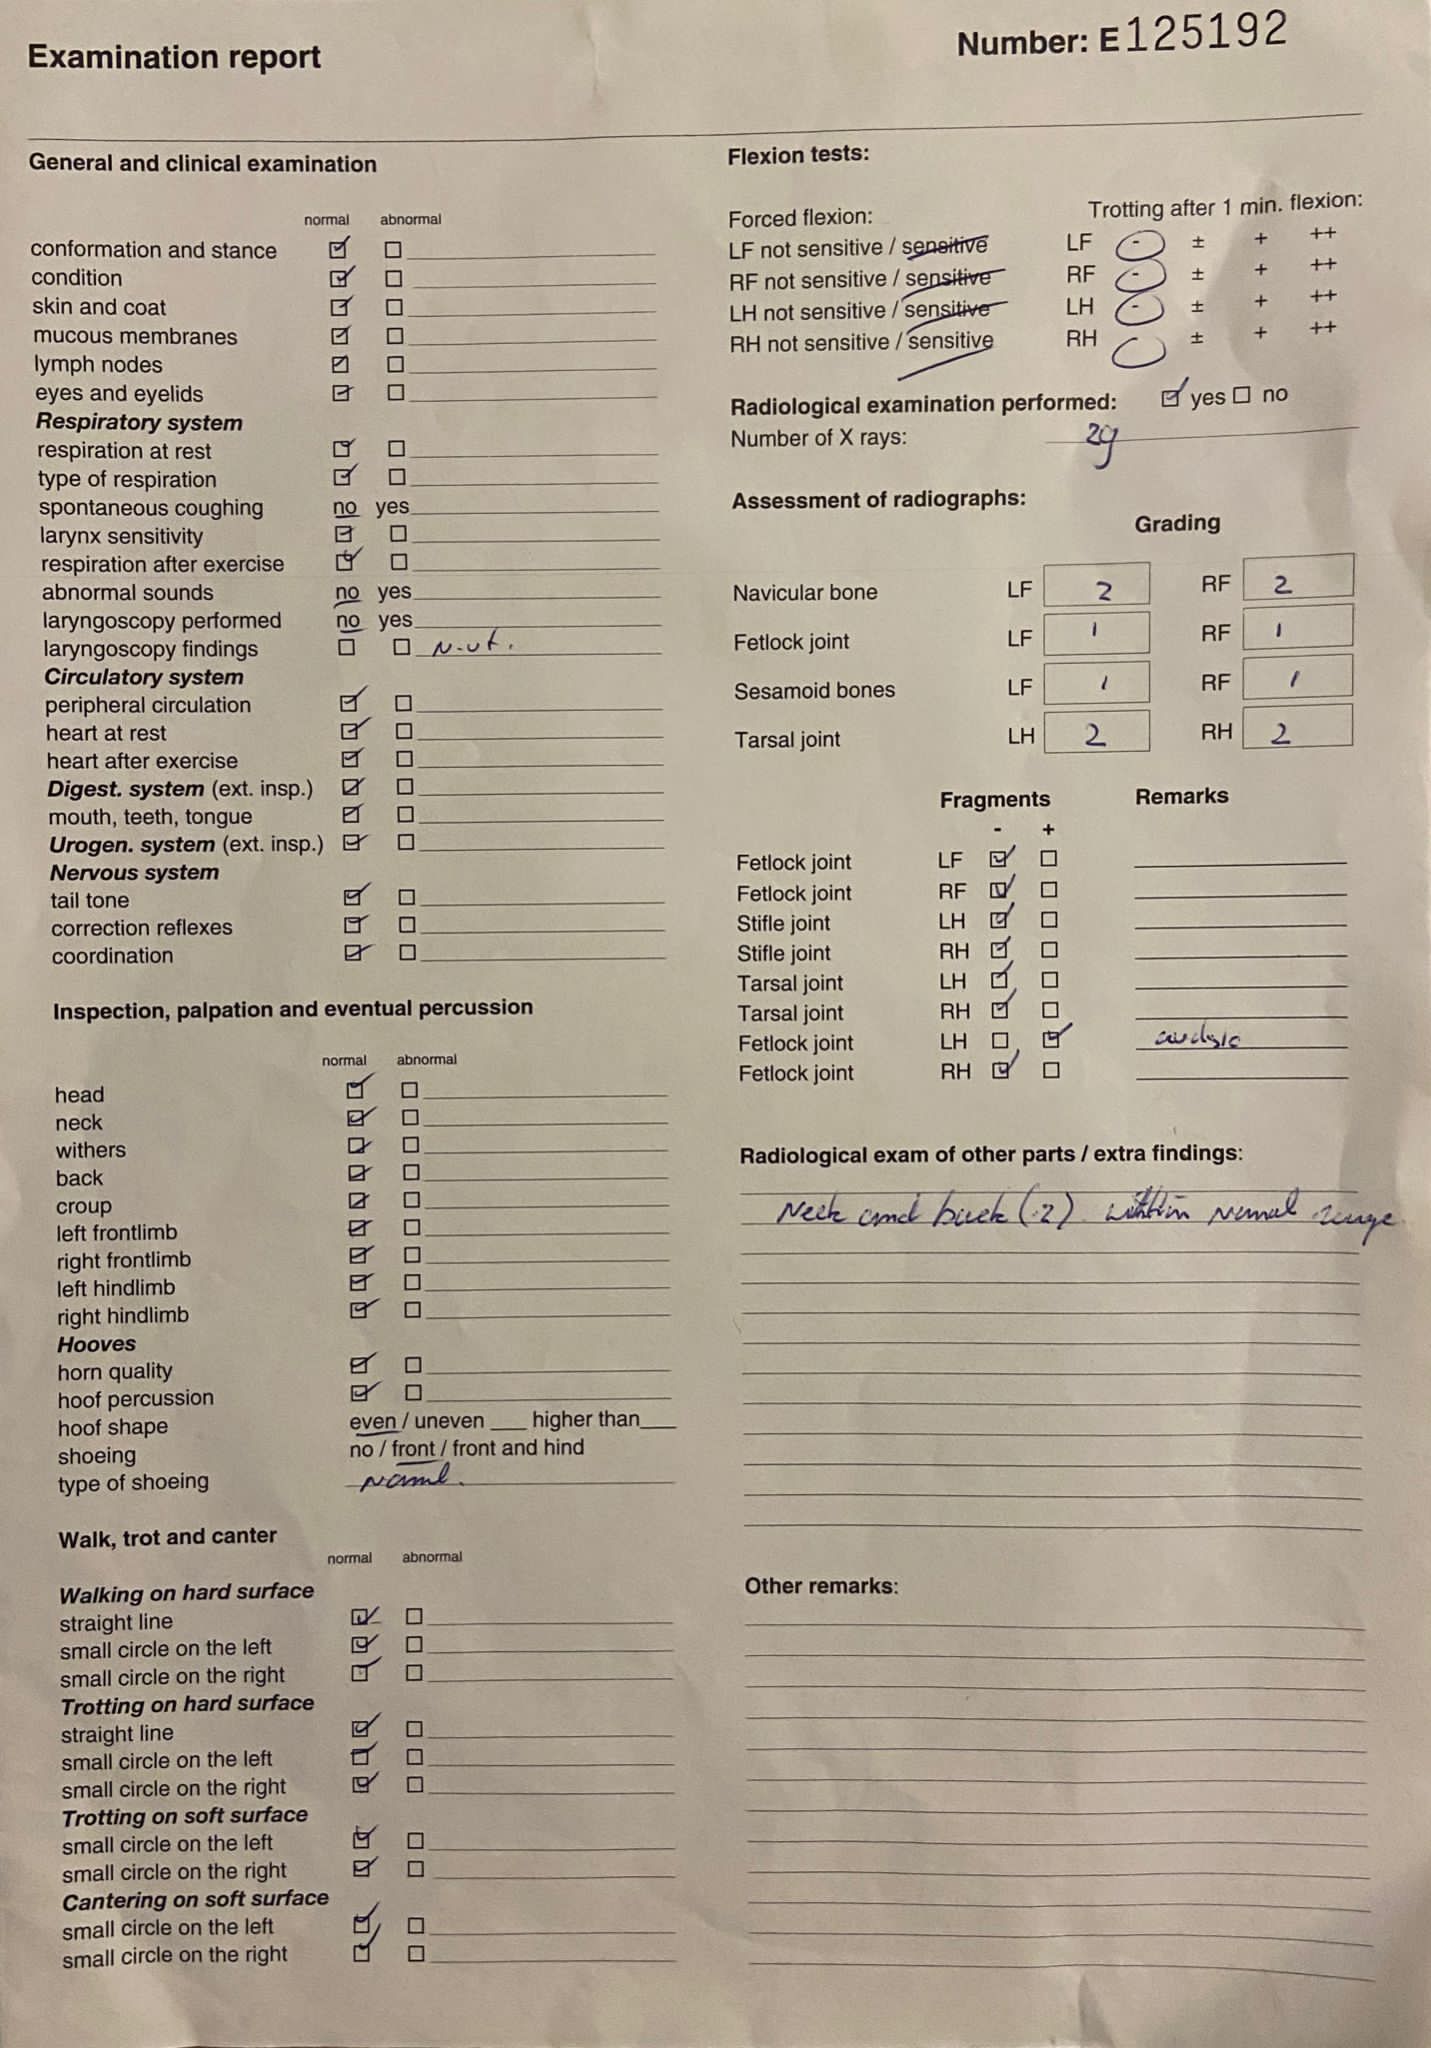 Examination report
Number: E 125192
General and clinical examination
normal abnormal
conformation and stance
condition
skin and coat
mucous membranes
lymph nodes
eyes and eyelids
Respiratory system
respiration at rest
type of respiration
spontaneous coughing no yes
larynx sensitivity
respiration after exercise
abnormal sounds no yes
laryngoscopy performed no yes
laryngoscopy findings
Circulatory system
peripheral circulation
heart at rest
heart after exercise
Digest. system (ext. insp.)
mouth, teeth, tongue
Urogen. system (ext. insp.)
Nervous system
tail tone
correction reflexes
coordination
Inspection, palpation and eventual percussion
normal abnormal
head
neck
withers
back
croup
left frontlimb
right frontlimb
left hindlimb
right hindlimb
Hooves
horn quality
hoof percussion
hoof shape even / uneven ___ higher than___
shoeing no / front / front and hind
type of shoeing
Walk, trot and canter
normal abnormal
Walking on hard surface
straight line
small circle on the left
small circle on the right
Trotting on hard surface
straight line
small circle on the left
small circle on the right
Trotting on soft surface
small circle on the left
small circle on the right
Cantering on soft surface
small circle on the left
small circle on the right
Flexion tests:
Forced flexion: Trotting after 1 min. flexion:
LF not sensitive / sensitive LF - ± + ++
RF not sensitive / sensitive RF - ± + ++
LH not sensitive / sensitive LH - ± + ++
RH not sensitive / sensitive RH ± + ++
Radiological examination performed: yes no
Number of X rays:
Assessment of radiographs:
Grading
Navicular bone LF 2 RF 2
Fetlock joint LF 1 RF 1
Sesamoid bones LF 1 RF 1
Tarsal joint LH 2 RH 2
Fragments Remarks
- +
Fetlock joint LF
Fetlock joint RF
Stifle joint LH
Stifle joint RH
Tarsal joint LH
Tarsal joint RH
Fetlock joint LH
Fetlock joint RH
Radiological exam of other parts / extra findings:
Neck and back (2). within normal range
Other remarks: